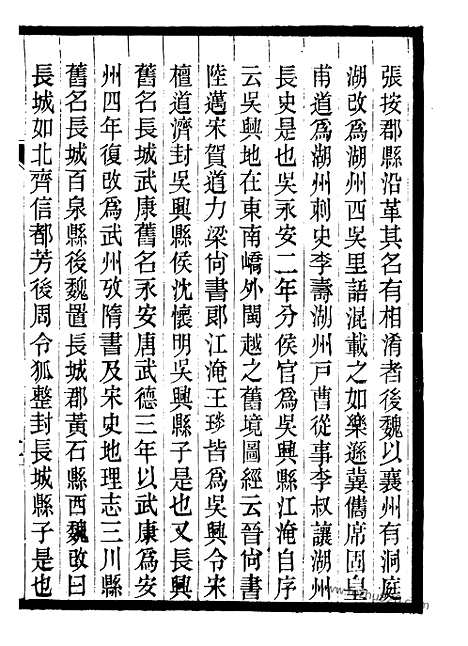 張按郡縣沿革其名有相淆者後魏以襄州有洞庭
湖改爲湖州西吳里語混載之如樂遜冀儁席固皇
甫道爲湖州刺史李壽湖州戸曹從事李叔讓湖州
長史是也吳永安二年分侯官爲吳興縣江淹自序
云吳興地在東南嶠外閩越之舊境圖經云晉尚書
陸邁宋賀道力梁尙書郎江淹王琰皆爲吳興令宋
檀道濟封吳興縣侯沈懷明吳興縣子是也又長興
舊名長城武康舊名永安唐武德三年以武康爲安
州四年復改爲武州攷隋書及宋史地理志三川縣
舊名長城百泉縣後魏置長城郡黃石縣西魏改曰
長城如北齊信都芳後周令狐整封長城縣子是也